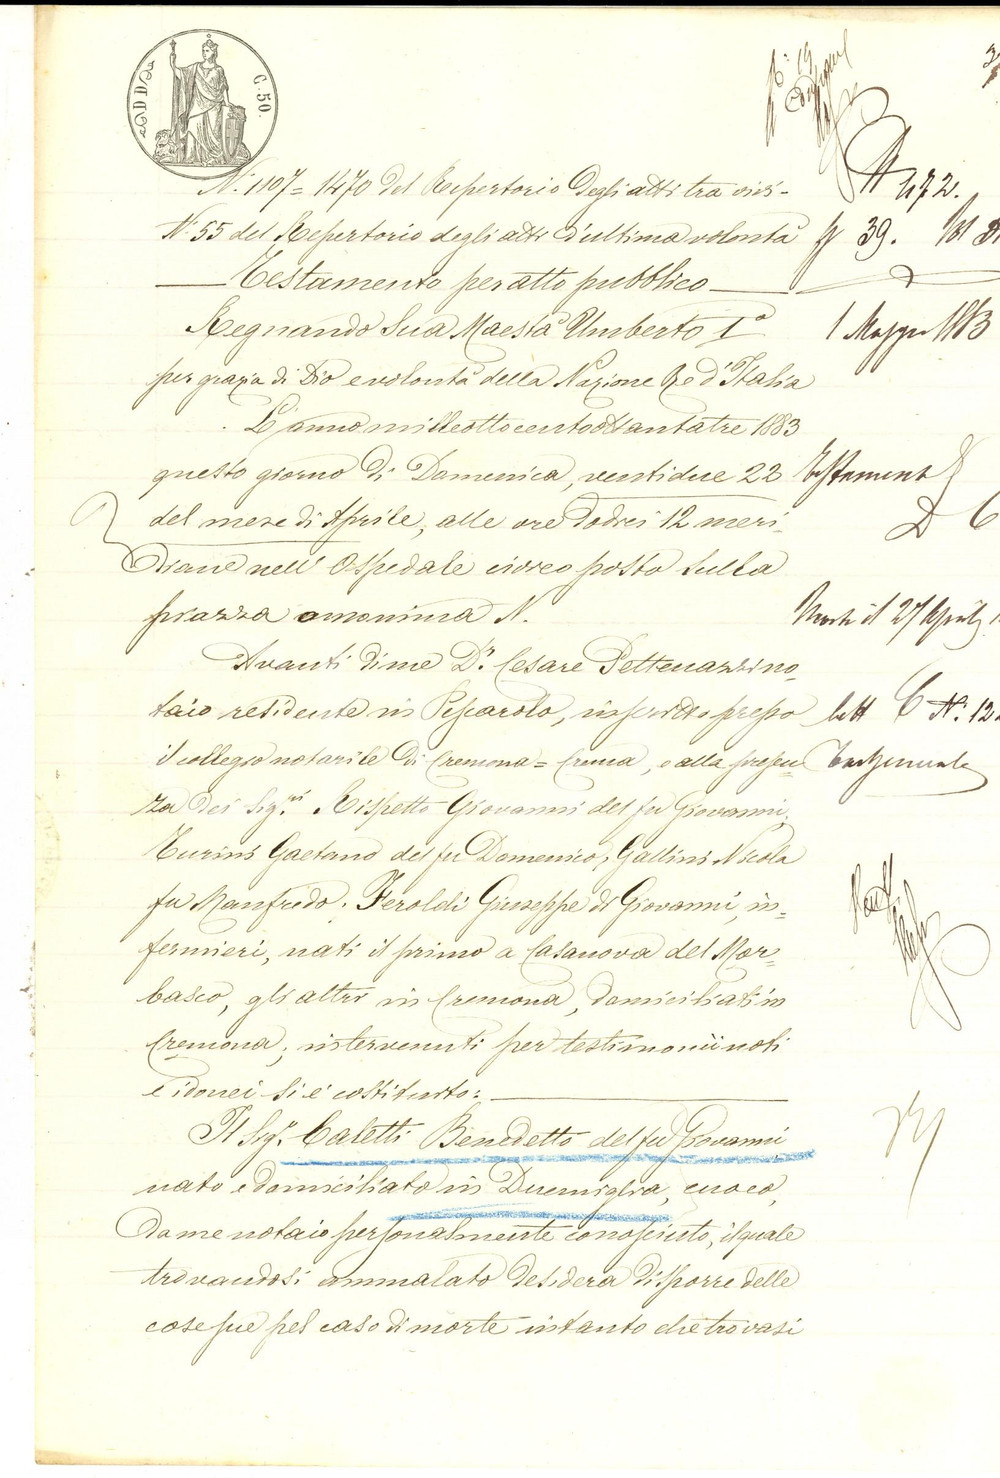 C. 50.
N. 1107 = 1470 del Repertorio degli atti tra vivi -
N. 55 del Repertorio degli atti d'ultima volontà
Testamento per atto pubblico
Regnando Sua Maestà Umberto I°
per grazia di Dio e volontà della Nazione Re d'Italia
L'anno milleottocentottantatre 1883
questo giorno di Domenica, ventidue 22
del mese di Aprile, alle ore dodici 12 meri-
diane nell'Ospedale civico posto sulla
piazza omonima N.
Avanti di me Dr. Cesare Pettenazzi no-
taio residente in Piparolo, inscritto presso
il collegio notarile di Cremona = Crema, e alla presen-
za dei Sigri. Rispetto Giovanni del fu Giovanni,
Turini Gaetano del fu Domenico, Gallini Nicola
fu Manfredo, Feroldi Giuseppe di Giovanni, in-
fermieri, nati il primo a Casanova del Mor-
basco, gli altri in Cremona, domiciliati in
Cremona, intervenuti per testimonii noti
e idonei si è costituito:
Il Sigr. Caletti Benedetto del fu Giovanni
nato e domiciliato in Duemiglia, cuoco,
da me notaio personalmente conosciuto, il quale
trovandosi ammalato desidera disporre delle
cose sue pel caso di morte intanto che trovasi
N. 19
N 472.
39. Vol
1 Maggio 1883
Testamento
Morto il 27 Aprile
lett C N. 12
Testamento